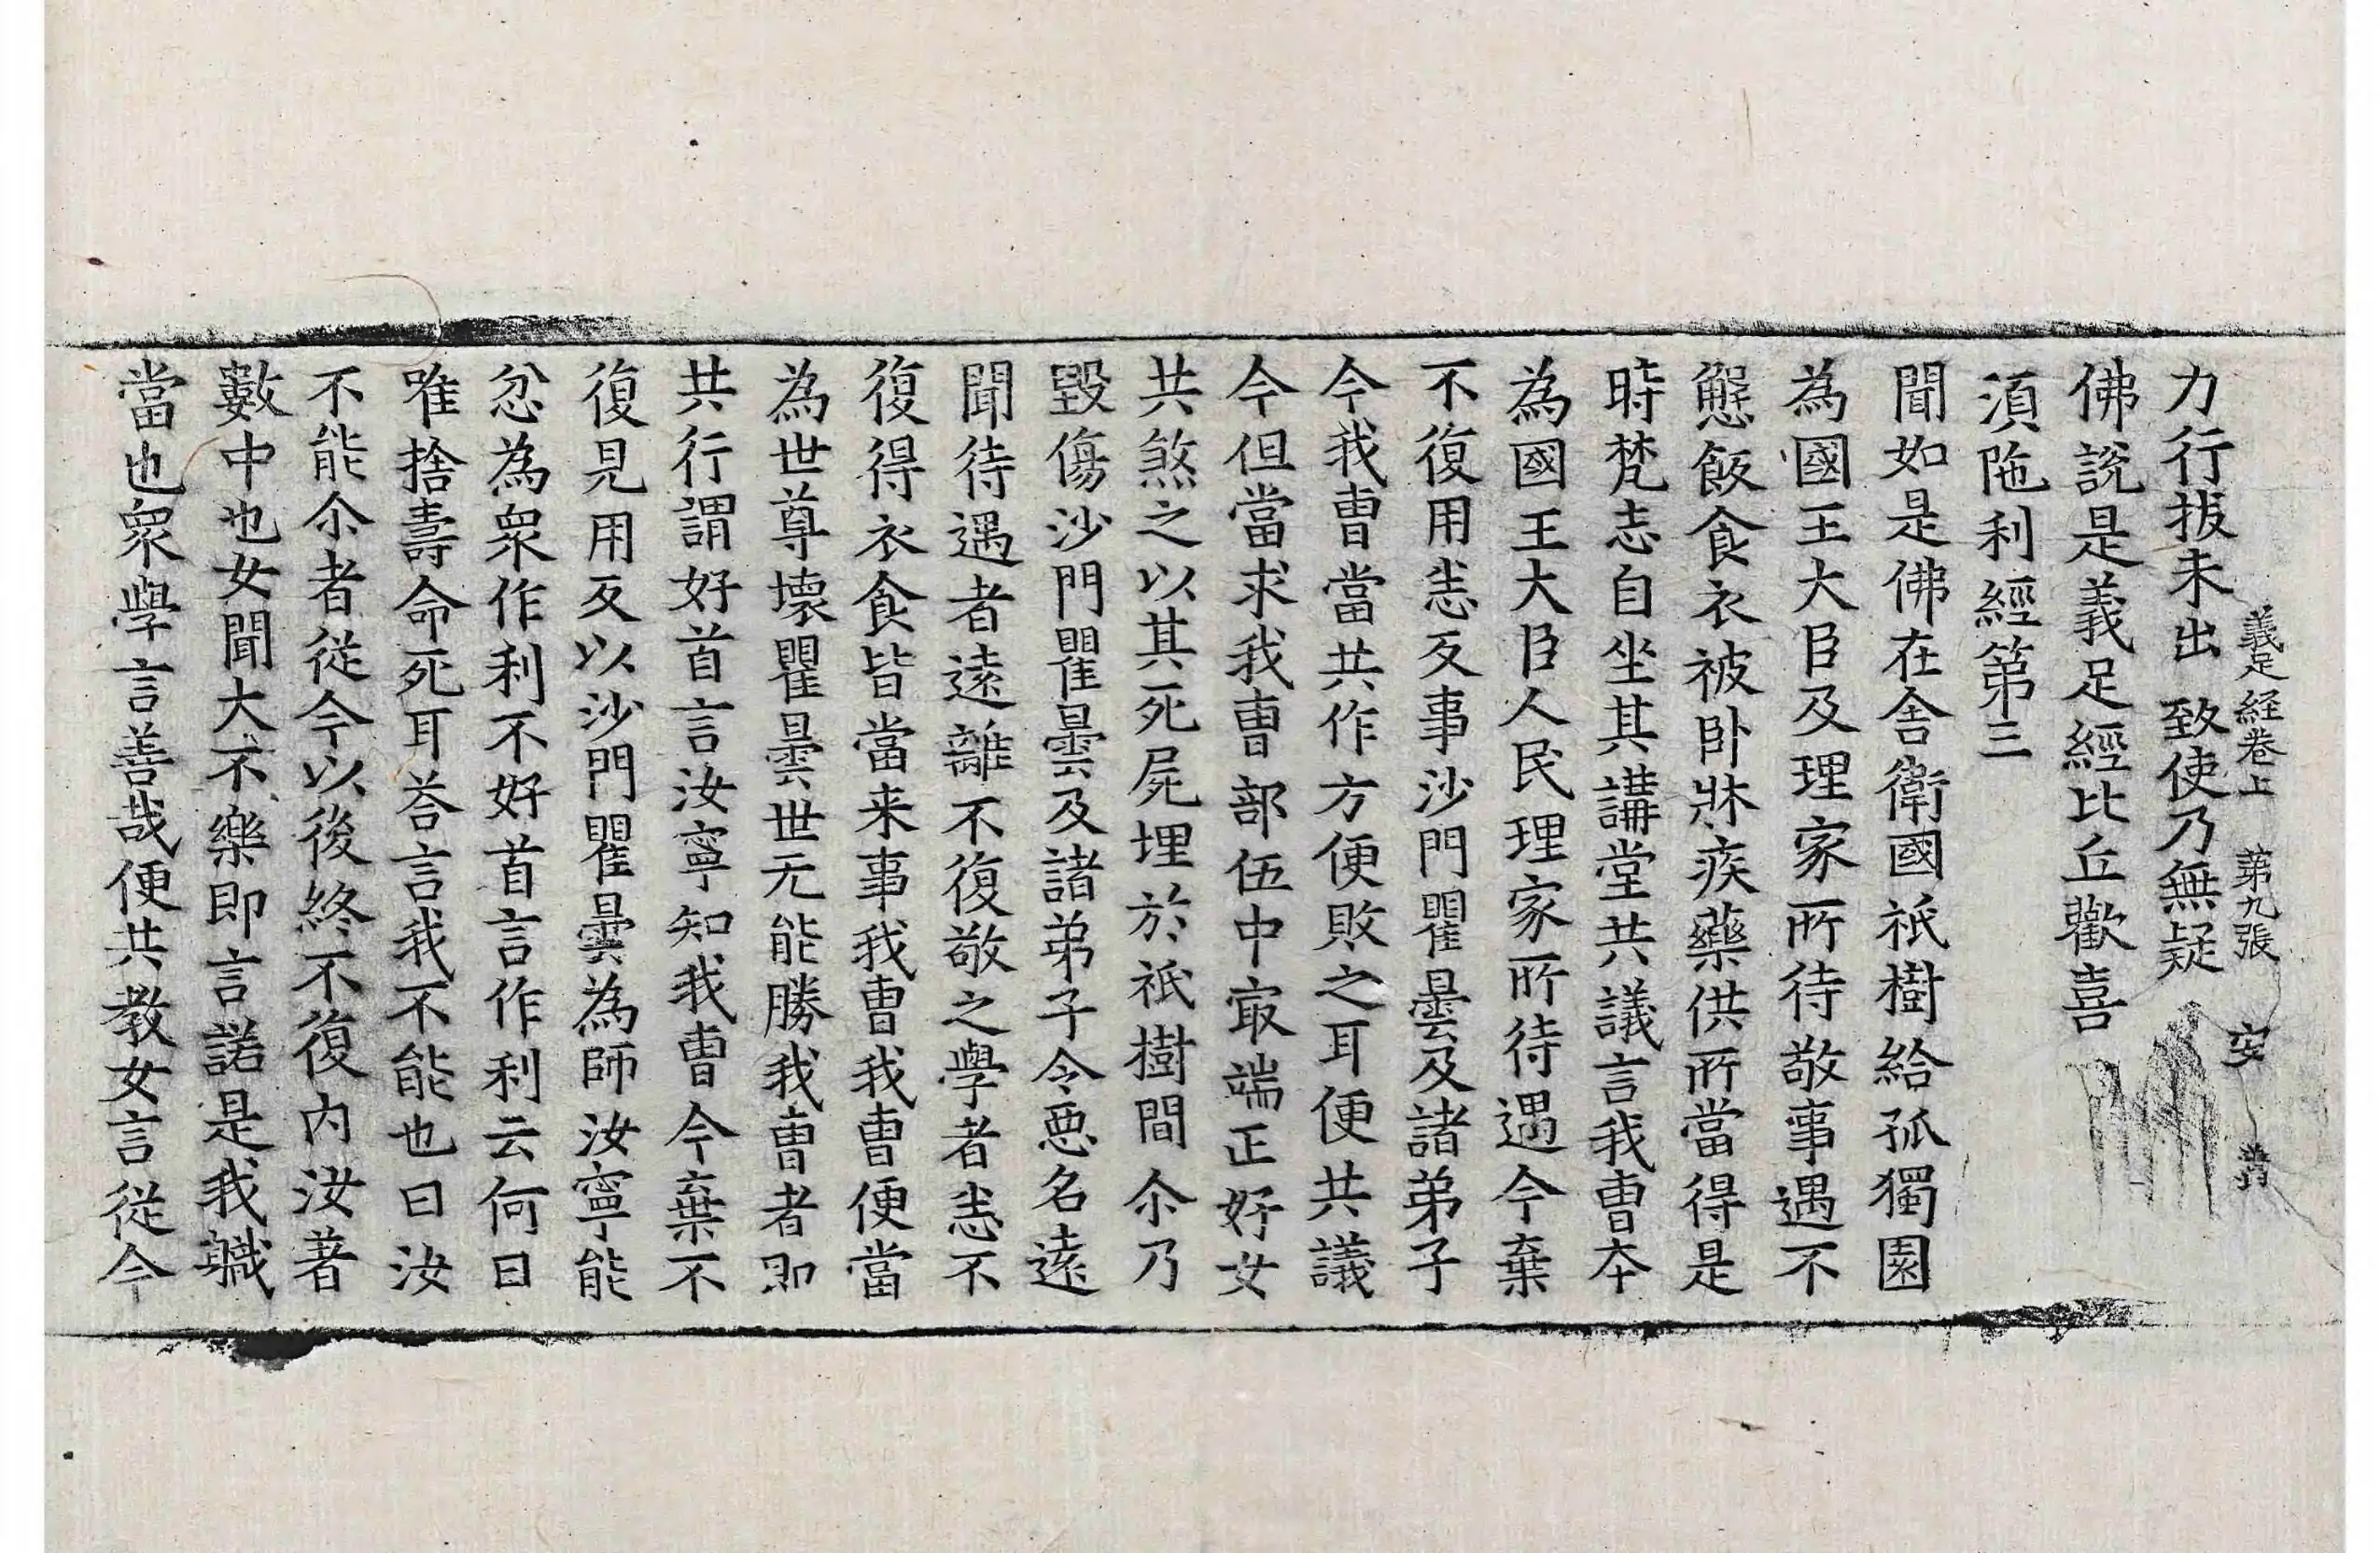 義足経卷上　第九張　安
力行拔未出　致使乃無疑
佛說是義足經比丘歡喜
湏陁利經第三
聞如是佛在舍衛國祇樹給孤獨園
為國王大臣及理家所待敬事遇不
懈飯食衣被卧牀疾藥供所當得是
時梵志自坐其講堂共議言我曺夲
為國王大臣人民理家所待遇今棄
不復用恙反事沙門瞿曇及諸弟子
今我曺當共作方便敗之耳便共議
今但當求我曺部伍中㝡端正好女
共煞之以其死屍埋於祇樹間尒乃
毀傷沙門瞿曇及諸弟子令惡名遠
聞待遇者遠離不復敬之學者恙不
復得衣食皆當来事我曺我曺便當
為世尊壞瞿曇世无能勝我曺者即
共行謂好首言汝寧知我曺今棄不
復見用反以沙門瞿曇為師汝寧能
忿為衆作利不好首言作利云何曰
唯捨壽命死耳荅言我不能也曰汝
不能尒者從今以後終不復內汝著
數中也女聞大不樂即言諾是我職
當也衆學言善哉便共教女言從今